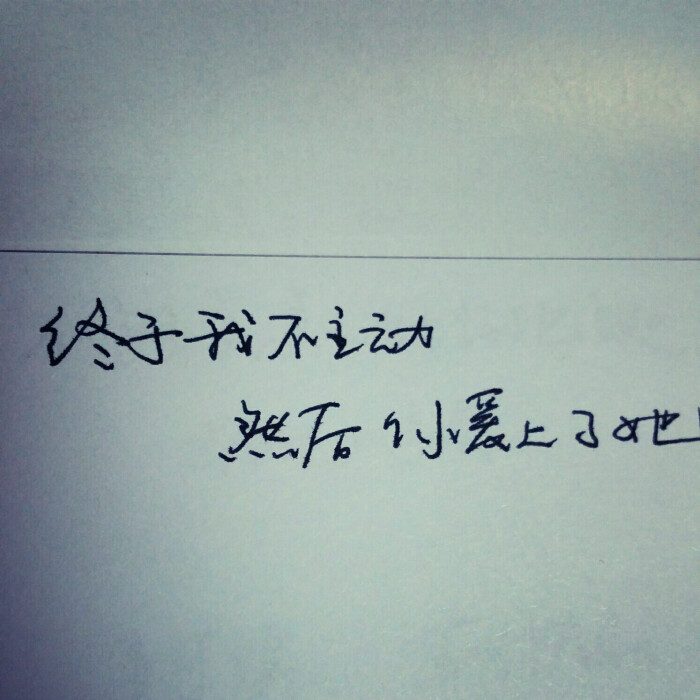 终于我不主动
然后你爱上了她